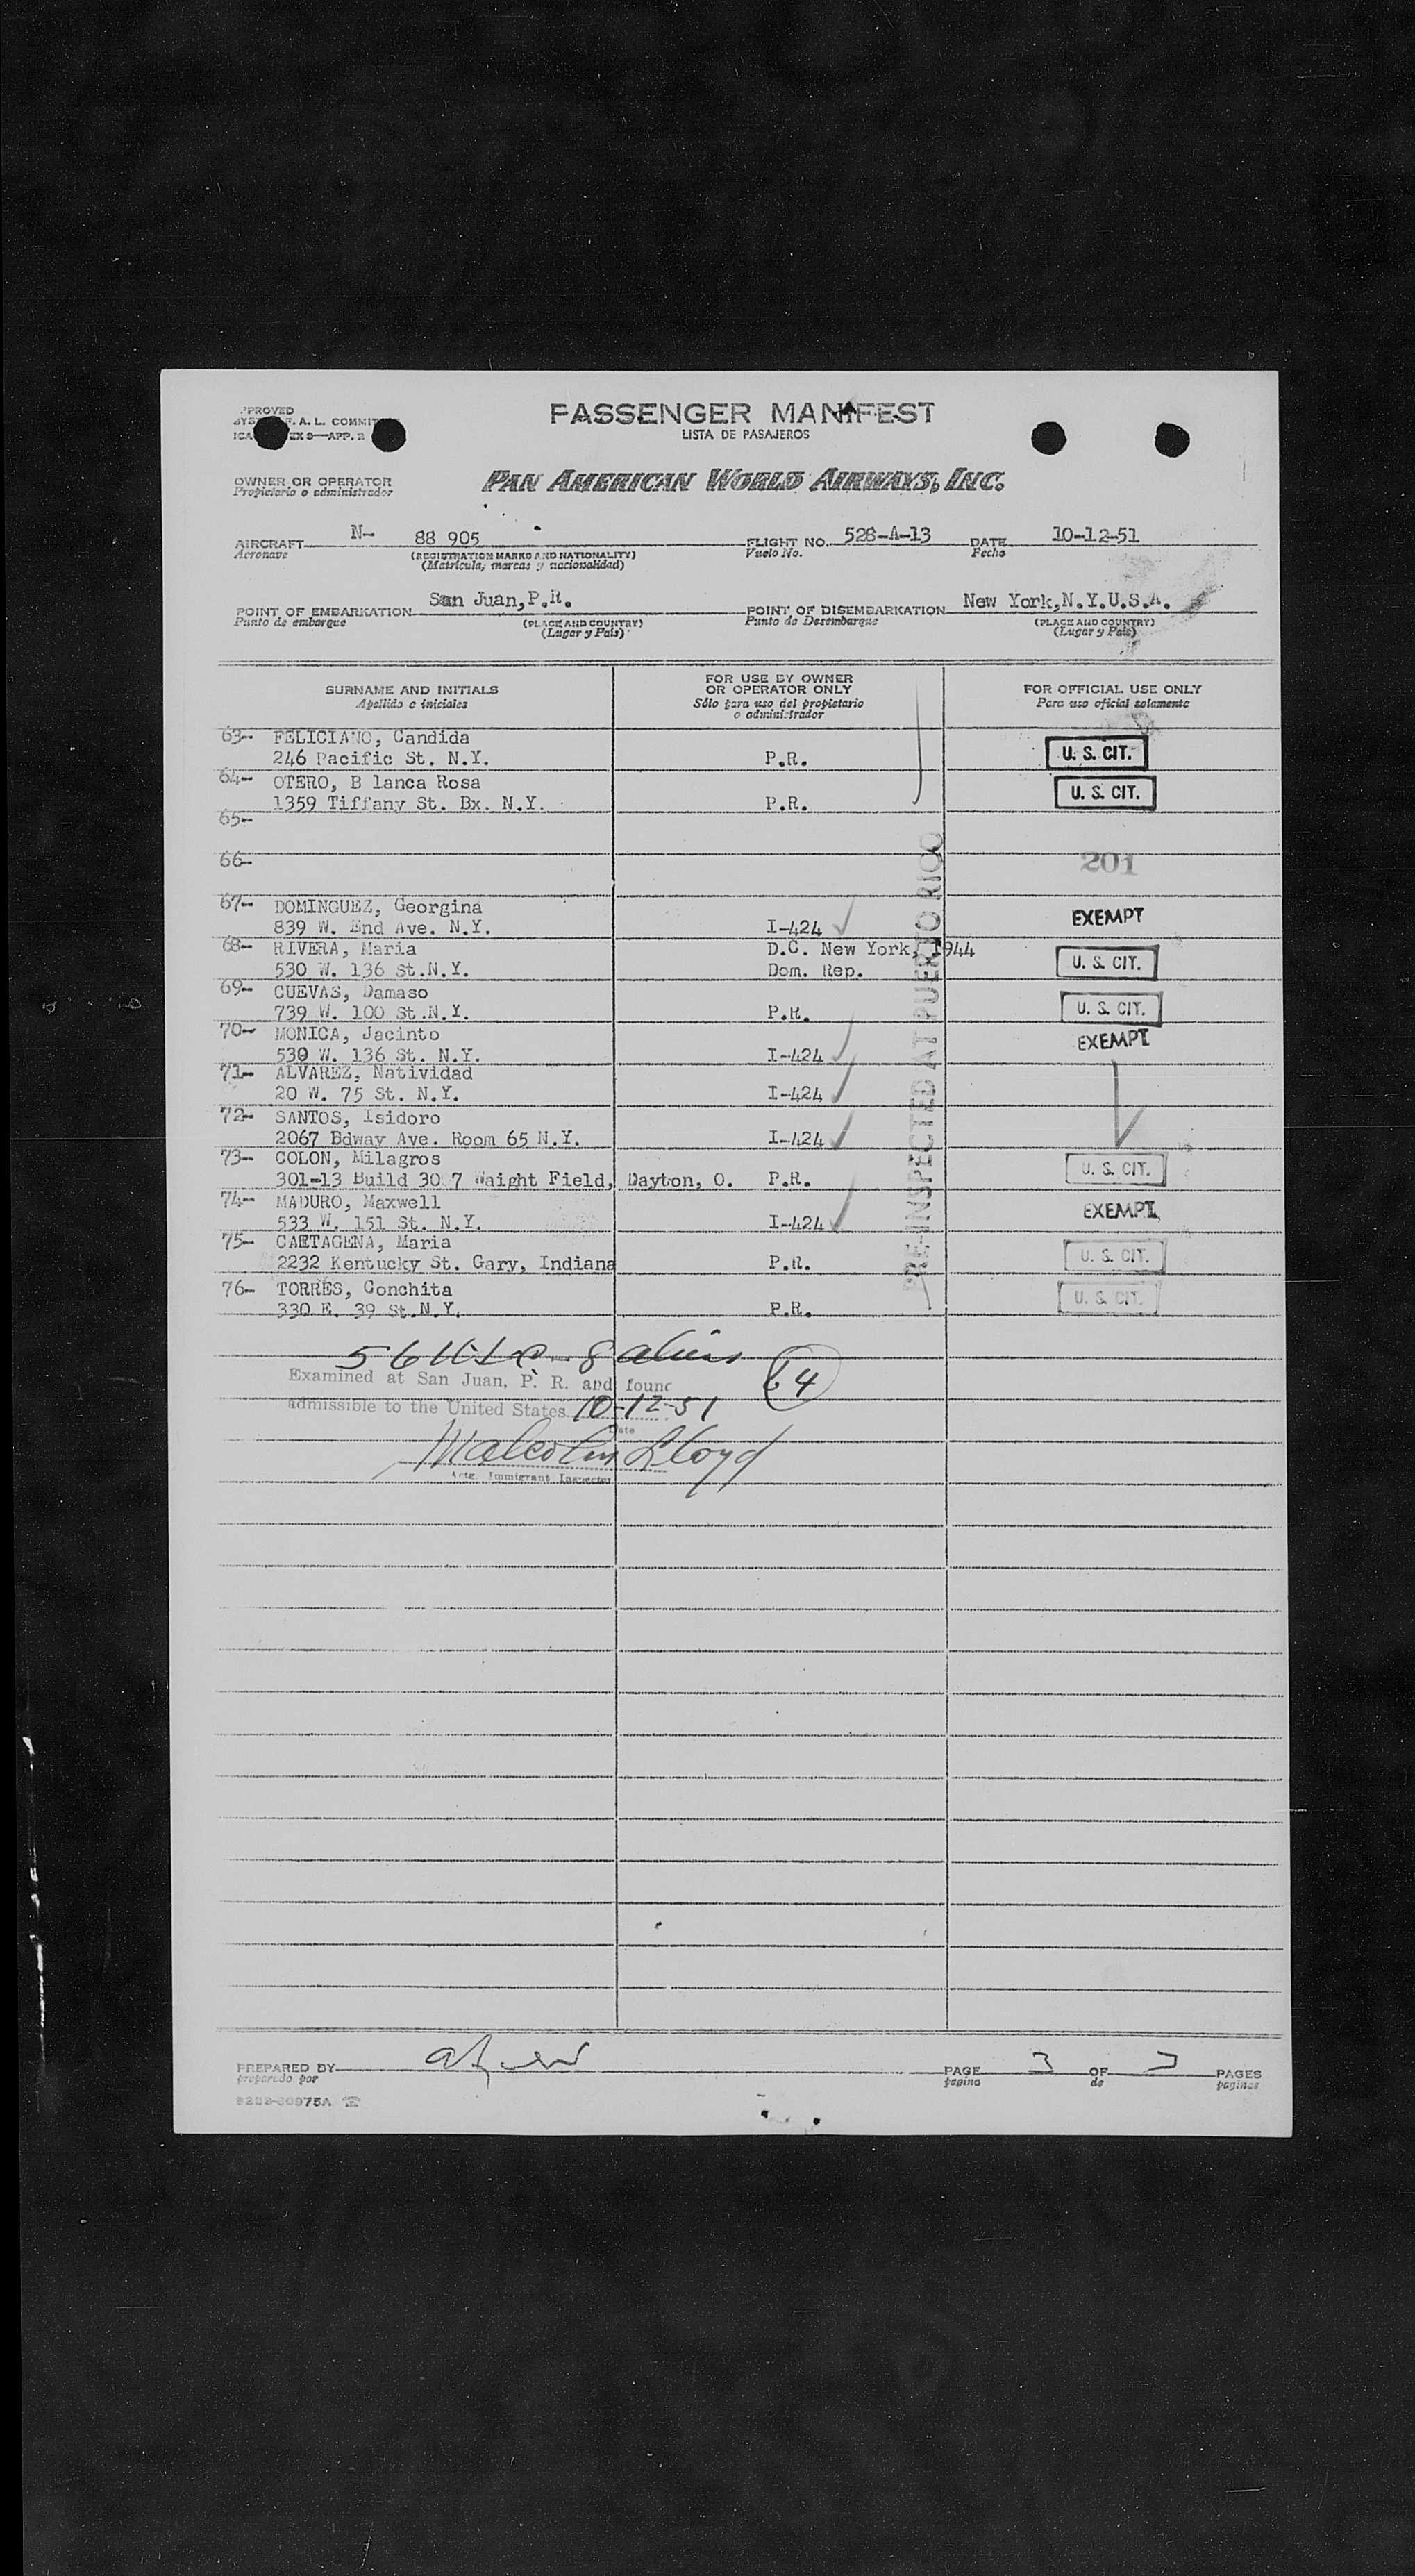 PASSENGER MANIFEST
LISTA DE PASAJEROS
OWNER OR OPERATOR
Propietario o administrador
PAN AMERICAN WORLD AIRWAYS, INC.
AIRCRAFT N- 88 905 FLIGHT NO. 528-A-13 DATE 10-12-51
Aeronave (REGISTRATION MARKS AND NATIONALITY) Vuelo No. Fecha
(Matrícula, marcas y nacionalidad)
POINT OF EMBARKATION San Juan,P.R. POINT OF DISEMBARKATION New York,N.Y.U.S.A.
Punto de embarque (PLACE AND COUNTRY) Punto de Desembarque (PLACE AND COUNTRY)
(Lugar y País) (Lugar y País)
SURNAME AND INITIALS FOR USE BY OWNER OR OPERATOR ONLY FOR OFFICIAL USE ONLY
Apellido e iniciales Sólo para uso del propietario o administrador Para uso oficial solamente
63- FELICIANO, Candida
246 Pacific St. N.Y. P.R. U. S. CIT.
64- OTERO, B lanca Rosa
1359 Tiffany St. Bx. N.Y. P.R. U. S. CIT.
65-
66- 201
67- DOMINGUEZ, Georgina
839 W. End Ave. N.Y. I-424 EXEMPT
68- RIVERA, Maria D.C. New York, 1944
530 W. 136 St.N.Y. Dom. Rep. U. S. CIT.
69- CUEVAS, Damaso
739 W. 100 St.N.Y. P.R. U. S. CIT.
70- MONICA, Jacinto
530 W. 136 St. N.Y. I-424 EXEMPT
71- ALVAREZ, Natividad
20 W. 75 St. N.Y. I-424
72- SANTOS, Isidoro
2067 Bdway Ave. Room 65 N.Y. I-424
73- COLON, Milagros
301-13 Build 30 7 Waight Field, Dayton, O. P.R. U. S. CIT.
74- MADURO, Maxwell
533 W. 151 St. N.Y. I-424 EXEMPT
75- CARTAGENA, Maria
2232 Kentucky St. Gary, Indiana P.R. U. S. CIT.
76- TORRES, Conchita
330 E. 39 St.N.Y. P.R. U. S. CIT.
PRE-INSPECTED AT PUERTO RICO
56 USC - 8 aliens 64
Examined at San Juan, P. R. and found
admissible to the United States 10-12-51
Date
Malcolm Lloyd
Actg. Immigrant Inspector
PREPARED BY PAGE 3 OF 3 PAGES
preparado por página de páginas